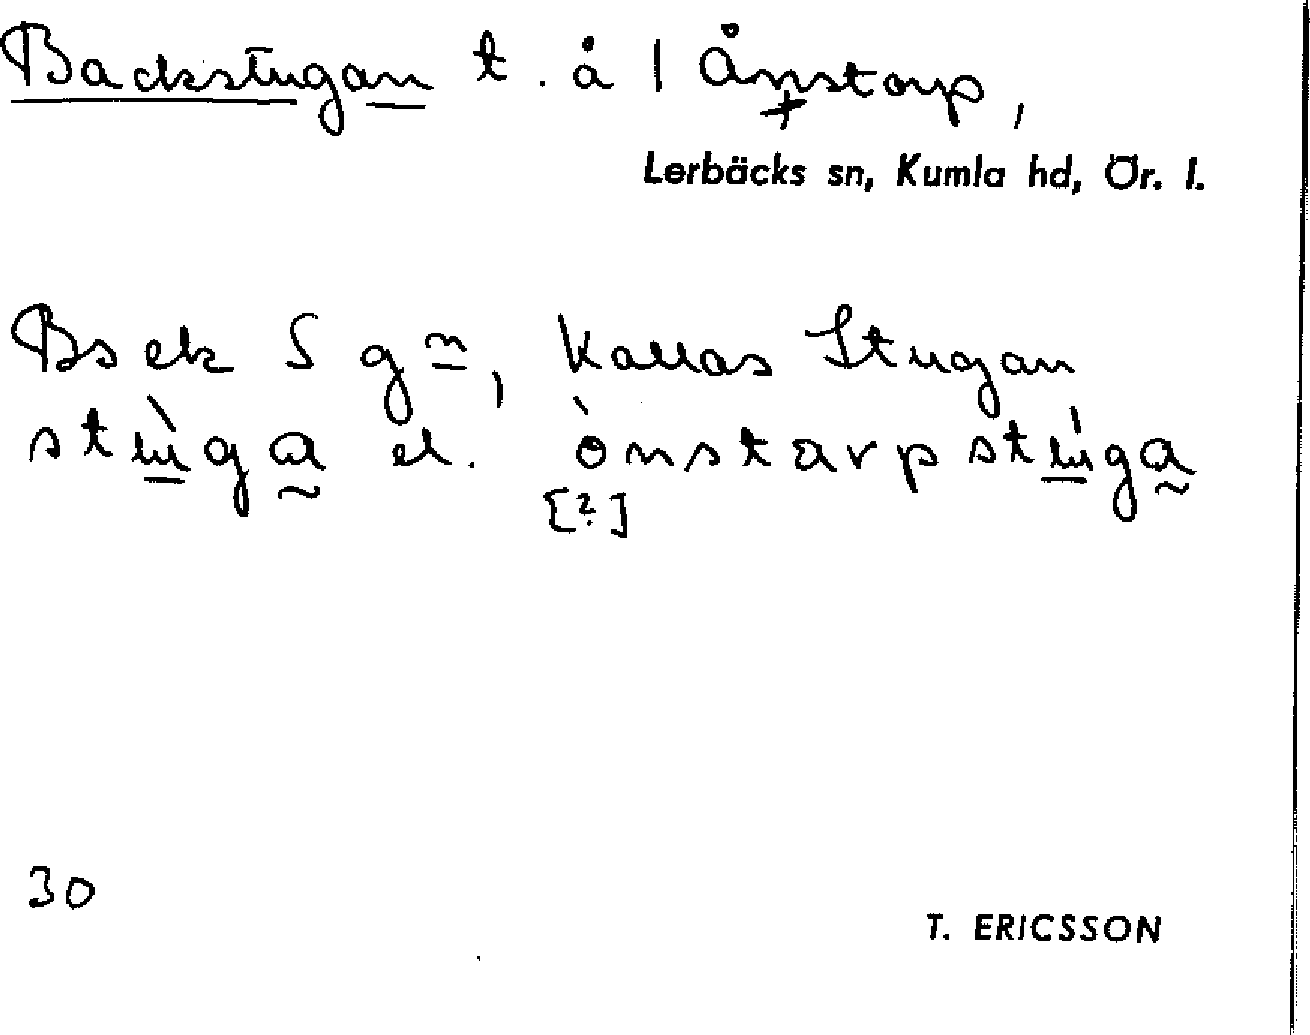 Backstugan t. å 1 Ånstorp,
Lerbäcks sn, Kumla hd, Ör. l.
Bs ek S g n, kallas Stugan
stùga el. ònstarpstúga
[?]
30
T. ERICSSON